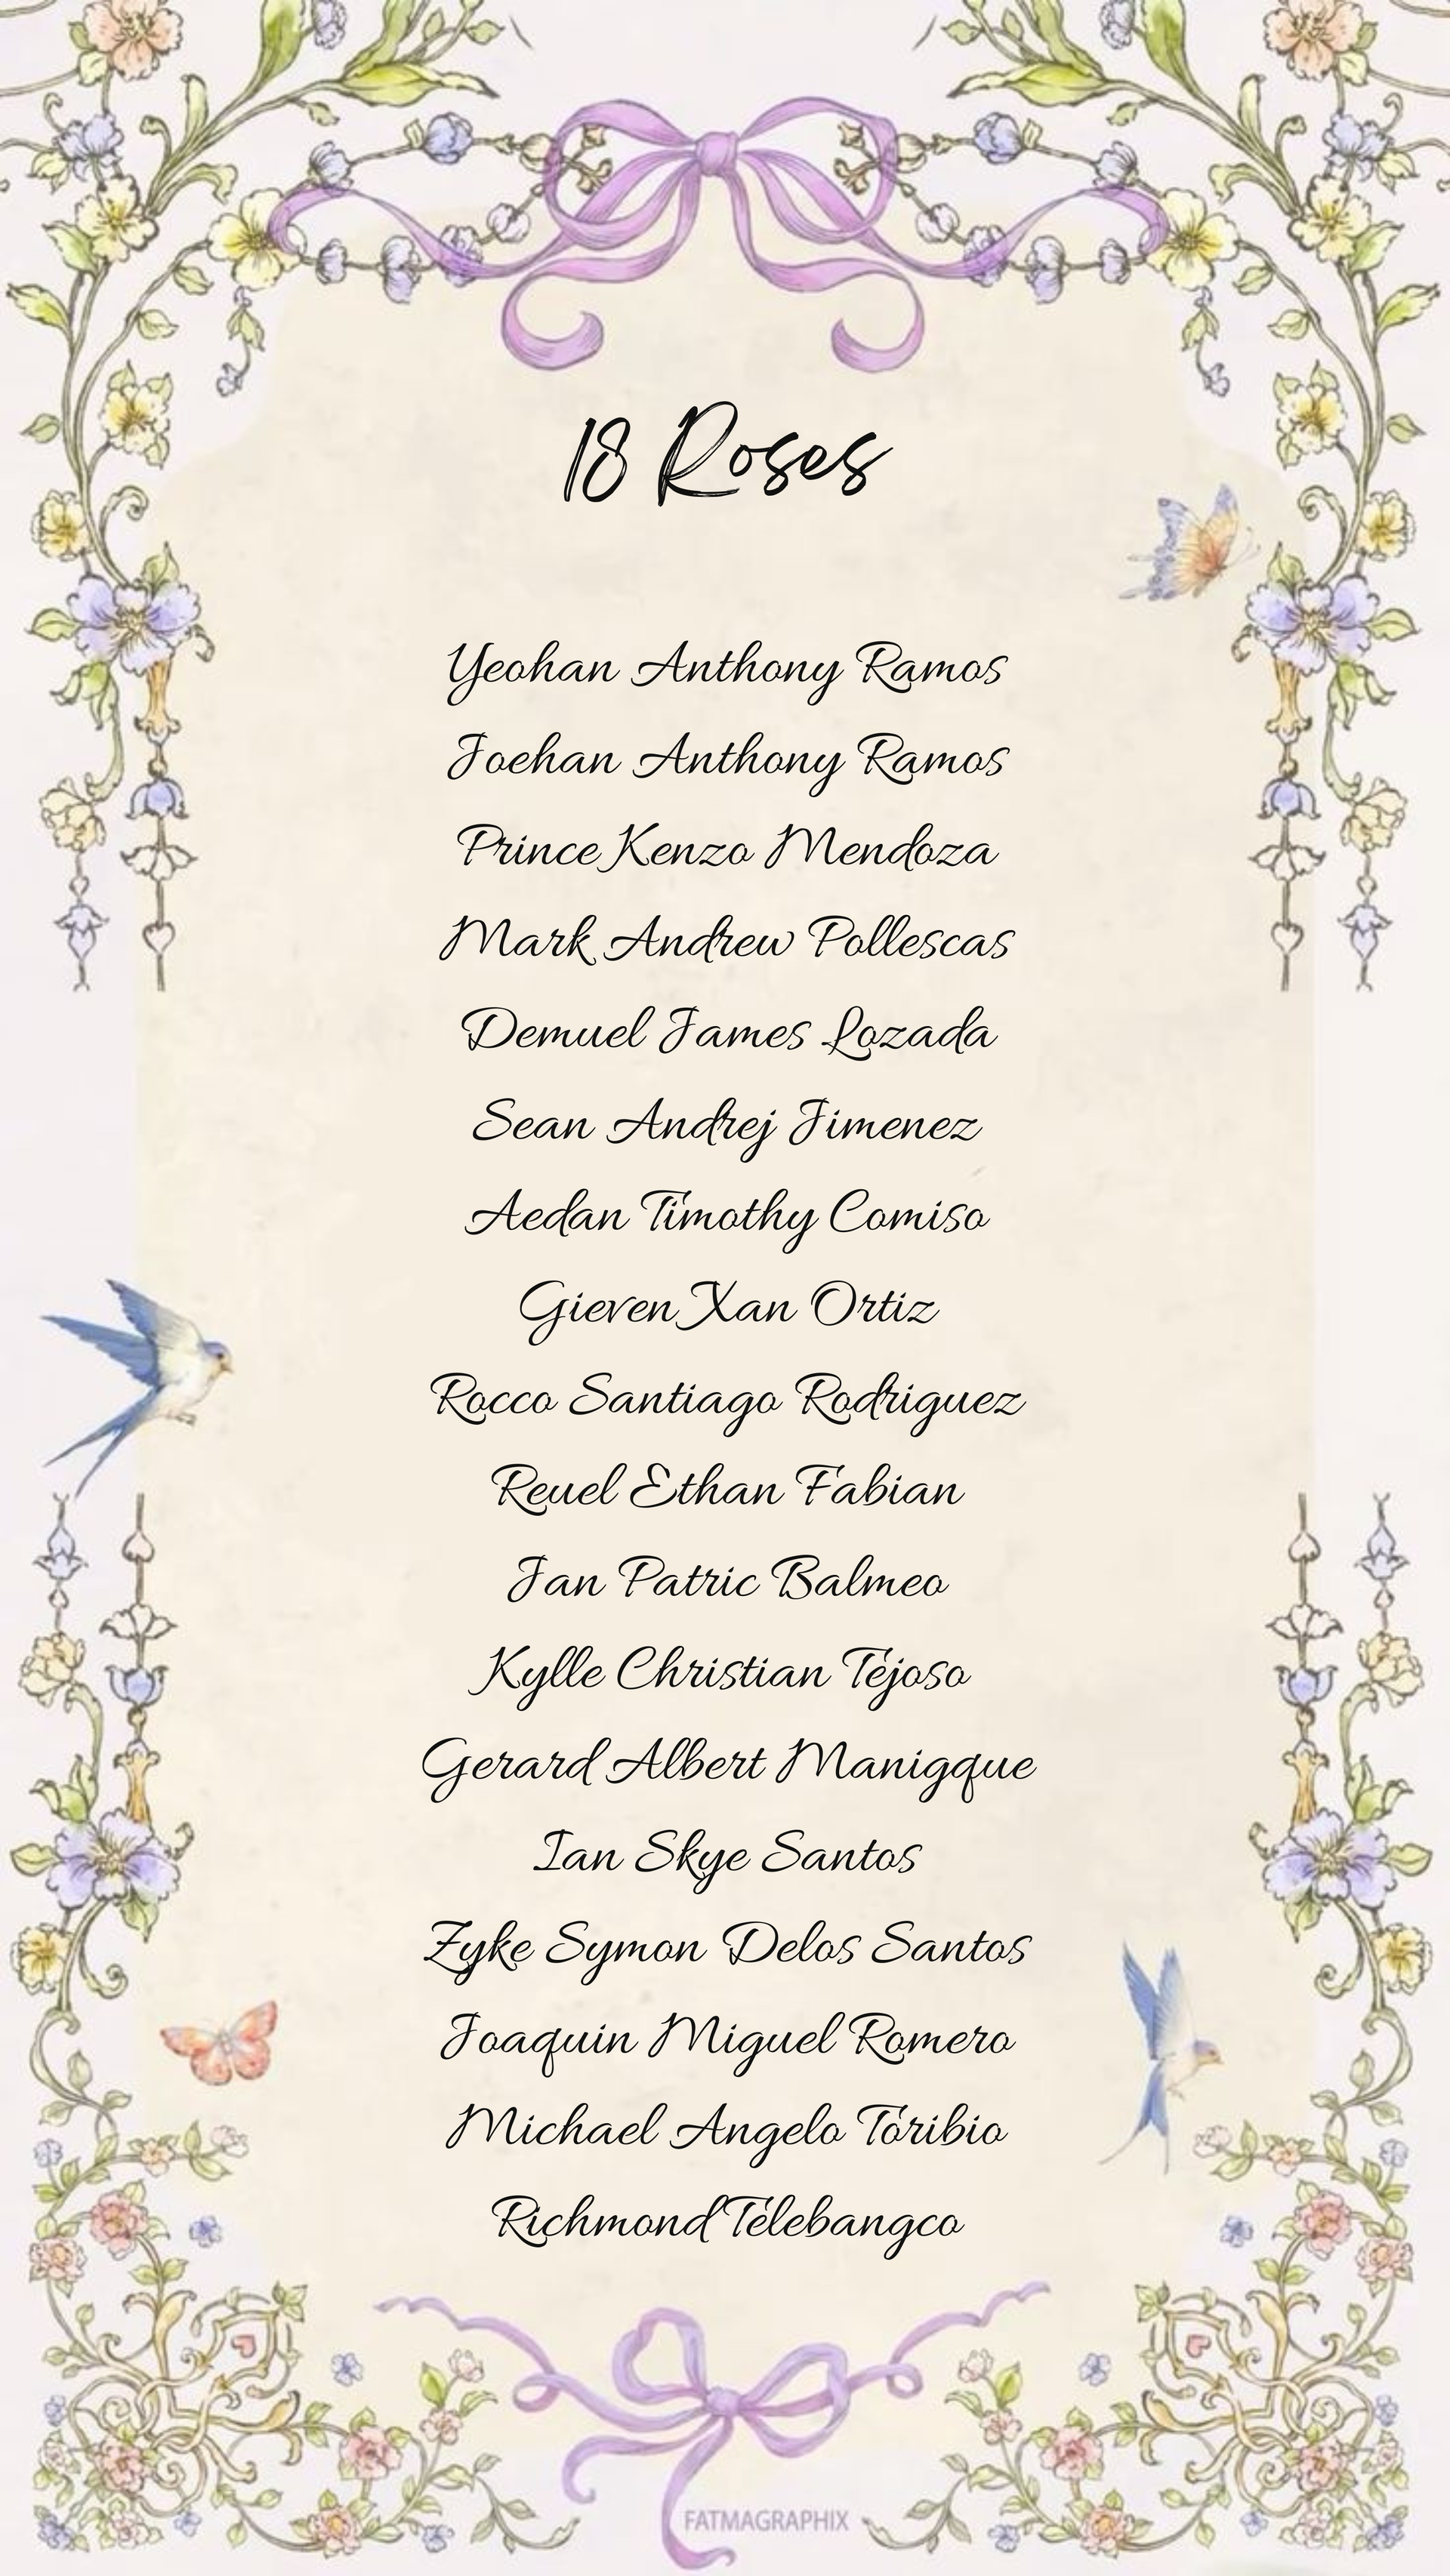 18 Roses
Yeohan Anthony Ramos
Joehan Anthony Ramos
Prince Kenzo Mendoza
Mark Andrew Pollescas
Demuel James Lozada
Sean Andrej Jimenez
Aedan Timothy Comiso
Gieven Xan Ortiz
Rocco Santiago Rodriguez
Reuel Ethan Fabian
Jan Patric Balmeo
Kylle Christian Tejoso
Gerard Albert Manigque
Ian Skye Santos
Zyke Symon Delos Santos
Joaquin Miguel Romero
Michael Angelo Toribio
Richmond Telebangco
FATMAGRAPHIX